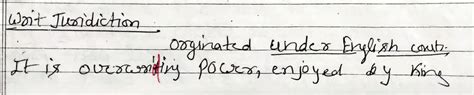 Writ Jusridiction
orginated under English court.
It is overwriting power, enjoyed by King